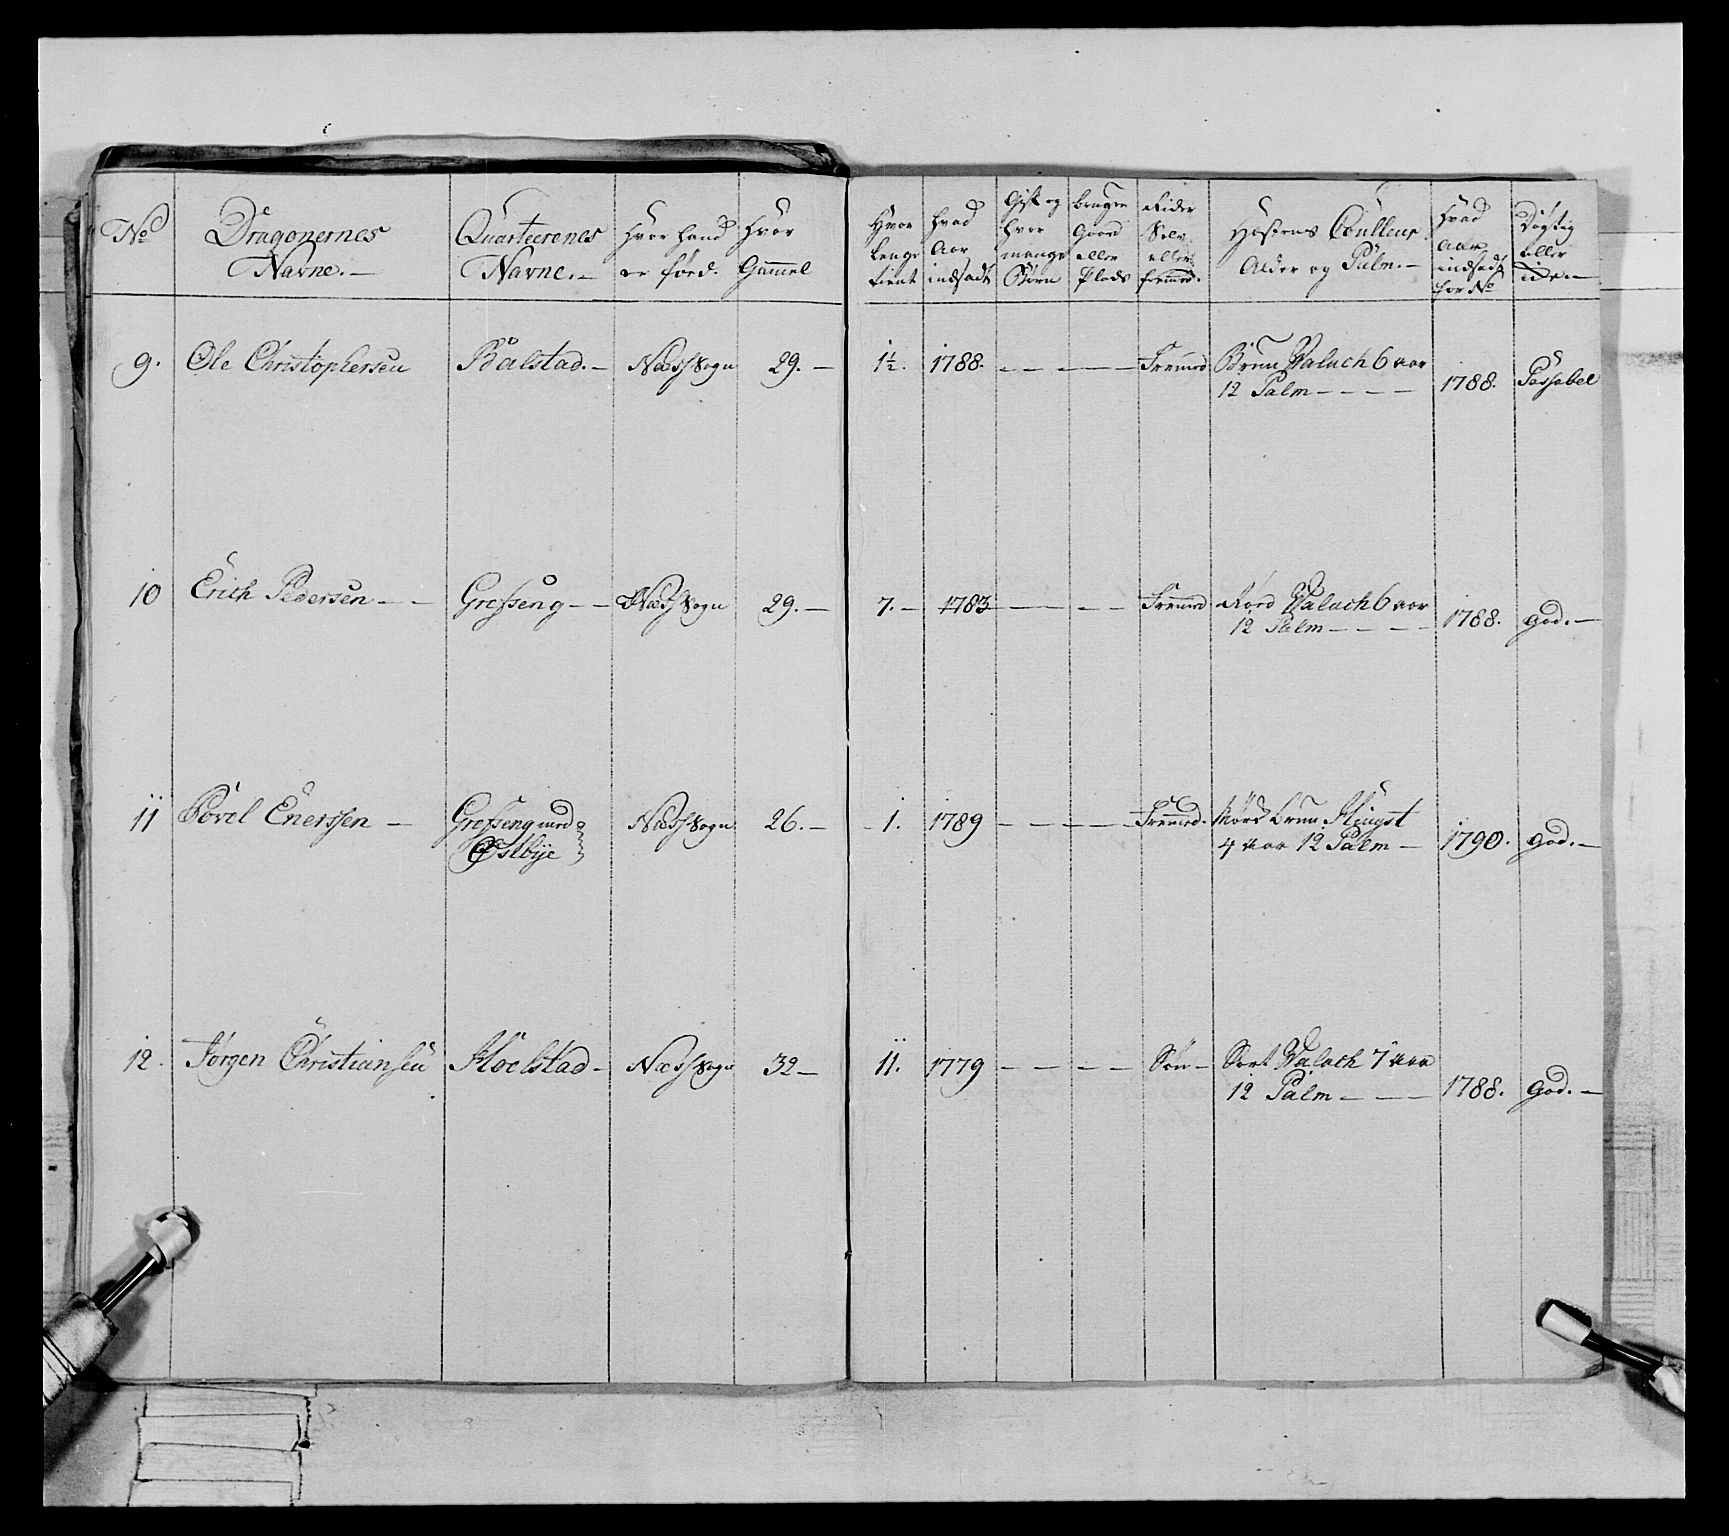 No Dragonernes Navne.— Quarteerenes Navne.— Hvor hand er föed. Hvor Gammel Hvor lenge tient hvad Aar indsadt Gift og hvor mange Börn bruger Gaard eller Plads Rider Selv eller fremmed. Hæstens Coulleur Alder og Palm.— hvad Aar indsadt for No Dygtig eller ide.—
9. Ole Christophersen Balstad.— Næss Sogn 29.— 1½. 1788. — — — — Fremed Brun Valach 6 aar
12 Palm — — — — 1788. Passabel
10 Erich Pedersen — — Grefseng — — Næss Sogn 29.— 7.— 1783 — — — — Fremed Röed Valach 6 aar
12 Palm — — — — 1788. god.—
11 Povel Enersen — Grefseng med Næss Sogn 26.— 1. 1789 — — — — Fremed. Mörk brun Hingst
Østbÿe 4 aar 12 Palm — 1790. god.—
12. Jörgen Christiansen Hoelstad — Næss Sogn 32— 11. 1779 — — — — Sön — Sort Valach 7 aar
12 Palm — — — 1788. god.—